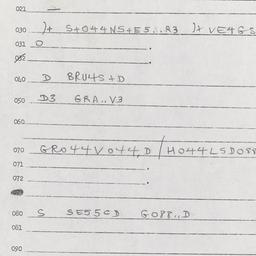 021 —
030 )+ S+044NS+E5...R3 )+ VE4GS
031 O .
032 .
040 D BRU4S+D
050 D3 GRA..V3
060
070 GRO44VO44,D / HO44LSDO8P
071 .
072 .
080 S SE55CD GOPP..D
081
090